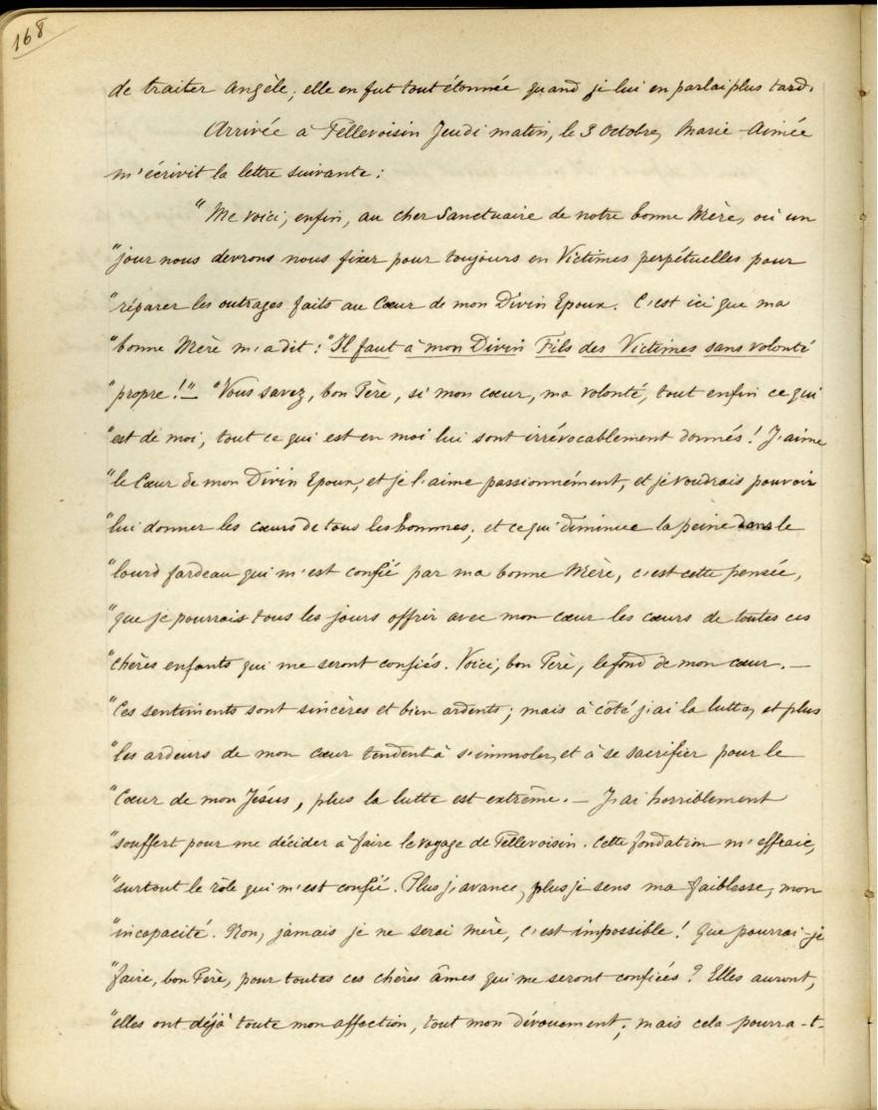 168
de traiter Angèle; elle en fut tout étonnée quand je lui en parlai plus tard.
Arrivée à Pellevoisin Jeudi matin, le 3 Octobre, Marie-Aimée
m'écrivit la lettre suivante:
"Me voici, enfin, au cher Sanctuaire de notre bonne Mère, où un
"jour nous devrons nous fixer pour toujours en Victimes perpétuelles pour
"réparer les outrages faits au Cœur de mon Divin Epoux. C'est ici que ma
"bonne Mère m'a dit: "Il faut à mon Divin Fils des Victimes sans volonté
"propre!" "Vous savez, bon Père, si mon cœur, ma volonté, tout enfin ce qui
"est de moi, tout ce qui est en moi lui sont irrévocablement donnés! J'aime
"le Cœur de mon Divin Epoux, et je l'aime passionnément, et je voudrais pouvoir
"lui donner les cœurs de tous les hommes; et ce qui diminue la peine dans le
"lourd fardeau qui m'est confié par ma bonne Mère, c'est cette pensée,
"que je pourrais tous les jours offrir avec mon cœur les cœurs de toutes ces
"chères enfants qui me seront confiés. Voici, bon Père, le fond de mon cœur. —
"Ces sentiments sont sincères et bien ardents; mais à côté j'ai la lutte, et plus
"les ardeurs de mon cœur tendent à s'immoler, et à se sacrifier pour le
"Cœur de mon Jésus, plus la lutte est extrême. — J'ai horriblement
"souffert pour me décider à faire le voyage de Pellevoisin. Cette fondation m'effraie,
"surtout le rôle qui m'est confié. Plus j'avance, plus je sens ma faiblesse, mon
"incapacité. Non, jamais je ne serai mère, c'est impossible! Que pourrai-je
"faire, bon Père, pour toutes ces chères âmes qui me seront confiées? Elles auront,
"elles ont déjà toute mon affection, tout mon dévouement; mais cela pourra-t-